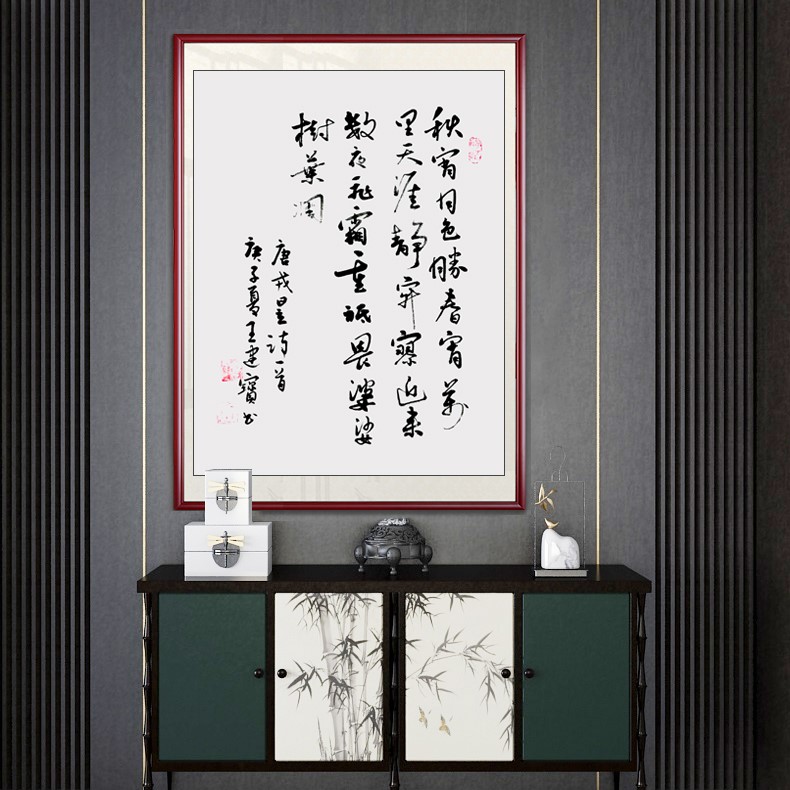 秋宵月色勝春宵萬
里天涯靜寂寥近来
數夜飛霜重祗畏婆娑
樹葉凋
唐戎昱詩一首
庚子夏王建寶书